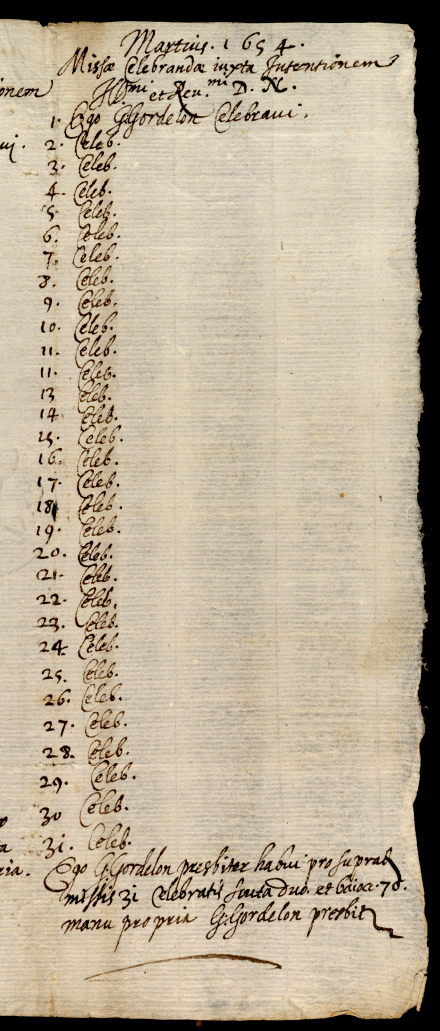 Martius. 1654.
Missæ Celebrandæ iuxta Intentiónem
Ill.mi et Reu.mi D. N.
1. Ego G:Gordelon Celebraui.
2. Celeb.
3. Celeb.
4. Celeb.
5. Celeb.
6. Celeb.
7. Celeb.
8. Celeb.
9. Celeb.
10. Celeb.
11. Celeb.
11. Celeb.
13 Celeb.
14 Celeb.
15. Celeb.
16. Celeb.
17. Celeb.
18 Celeb.
19. Celeb.
20. Celeb.
21. Celeb.
22. Celeb.
23. Celeb.
24 Celeb.
25. Celeb.
26. Celeb.
27. Celeb.
28. Celeb.
29. Celeb.
30 Celeb.
31. Celeb.
Ego G:Gordelon presbiter habui pro suprad
missis 31 Celebratis scuta duo et baioc. 70.
manu propria G:Gordelon presbit